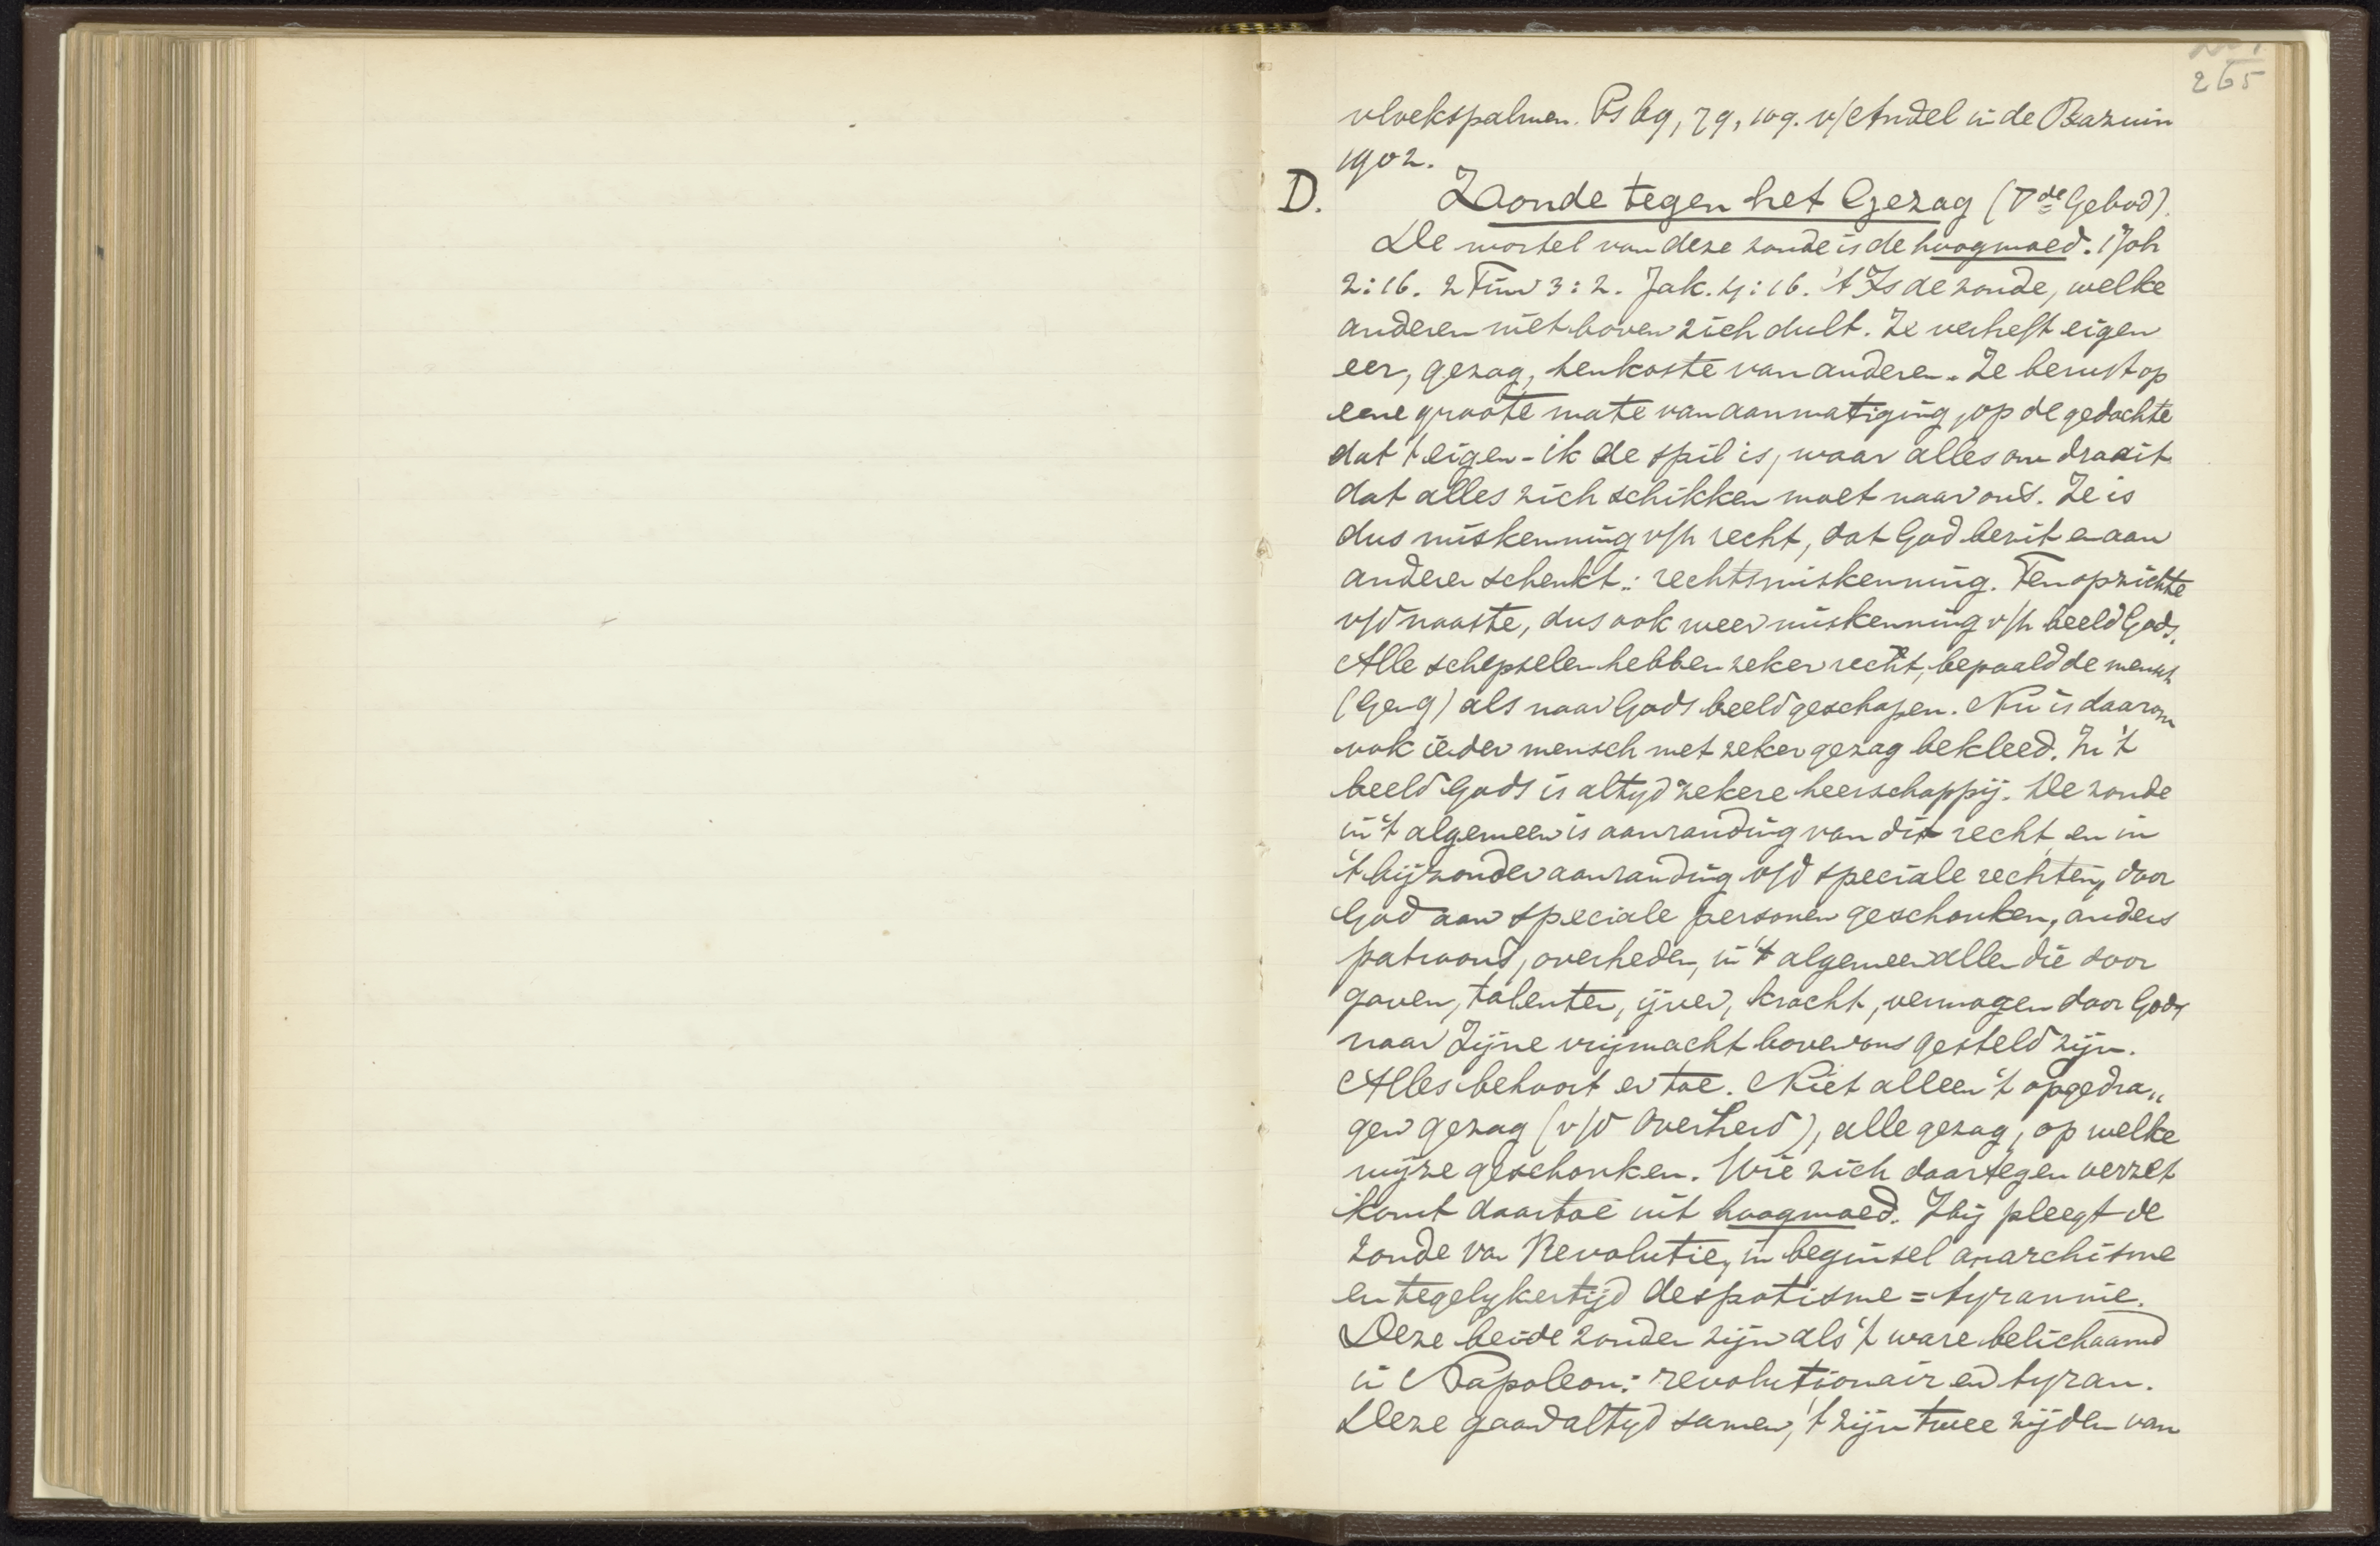 265
vloekpsalmen. Ps 69, 79, 109. v/ Andel in de Bazuin
1902.
D. Zonde tegen het Gezag (Vde Gebod).
De wortel van deze zonde is de hoogmoed. 1 Joh
2:16. 2 Tim 3:2. Jak. 4:16. 't Is de zonde, welke
anderen niet boven zich dult. Ze verheft eigen
eer, gezag, tenkoste van anderen. Ze berust op
eene groote mate van aanmatiging, op de gedachte
dat 't eigen-ik de spil is, waar alles om draait
dat alles zich schikken moet naar ons. Ze is
dus miskenning v/h recht, dat God bezit en aan
anderen schenkt.: rechtsmiskenning. Ten opzichte
v/d naaste, dus ook weer miskenning v/h beeld Gods.
Alle schepselen hebben zeker recht, bepaald de mensch
(Gen 9) als naar Gods beeld geschapen. Nu is daarom
ook ieder mensch met zeker gezag bekleed. In 't
beeld Gods is altyd zekere heerschappij. De zonde
in 't algemeen is aanranding van dit recht en in
't bijzonder aanranding v/d speciale rechten, door
God aan speciale personen geschonken, anders
patroons, overheden, in 't algemeen allen die door
gaven, talenten, ijver, kracht, vermogen door God,
naar Zijne vrijmacht boven ons gesteld zijn.
Alles behoort er toe. Niet alleen 't opgedra„
gen gezag (v/d Overheid), alle gezag, op welke
wijze geschonken. Wie zich daartegen verzet
komt daartoe uit hoogmoed. Hij pleegt de
zonde van Revolutie, in beginsel anarchisme
en tegelykertijd despotisme = tyrannie.
Deze beide zonden zijn als 't ware belichaamd
in Napoleon: revolutionair en tyran.
Deze gaan altyd samen, 't zijn twee zijden van